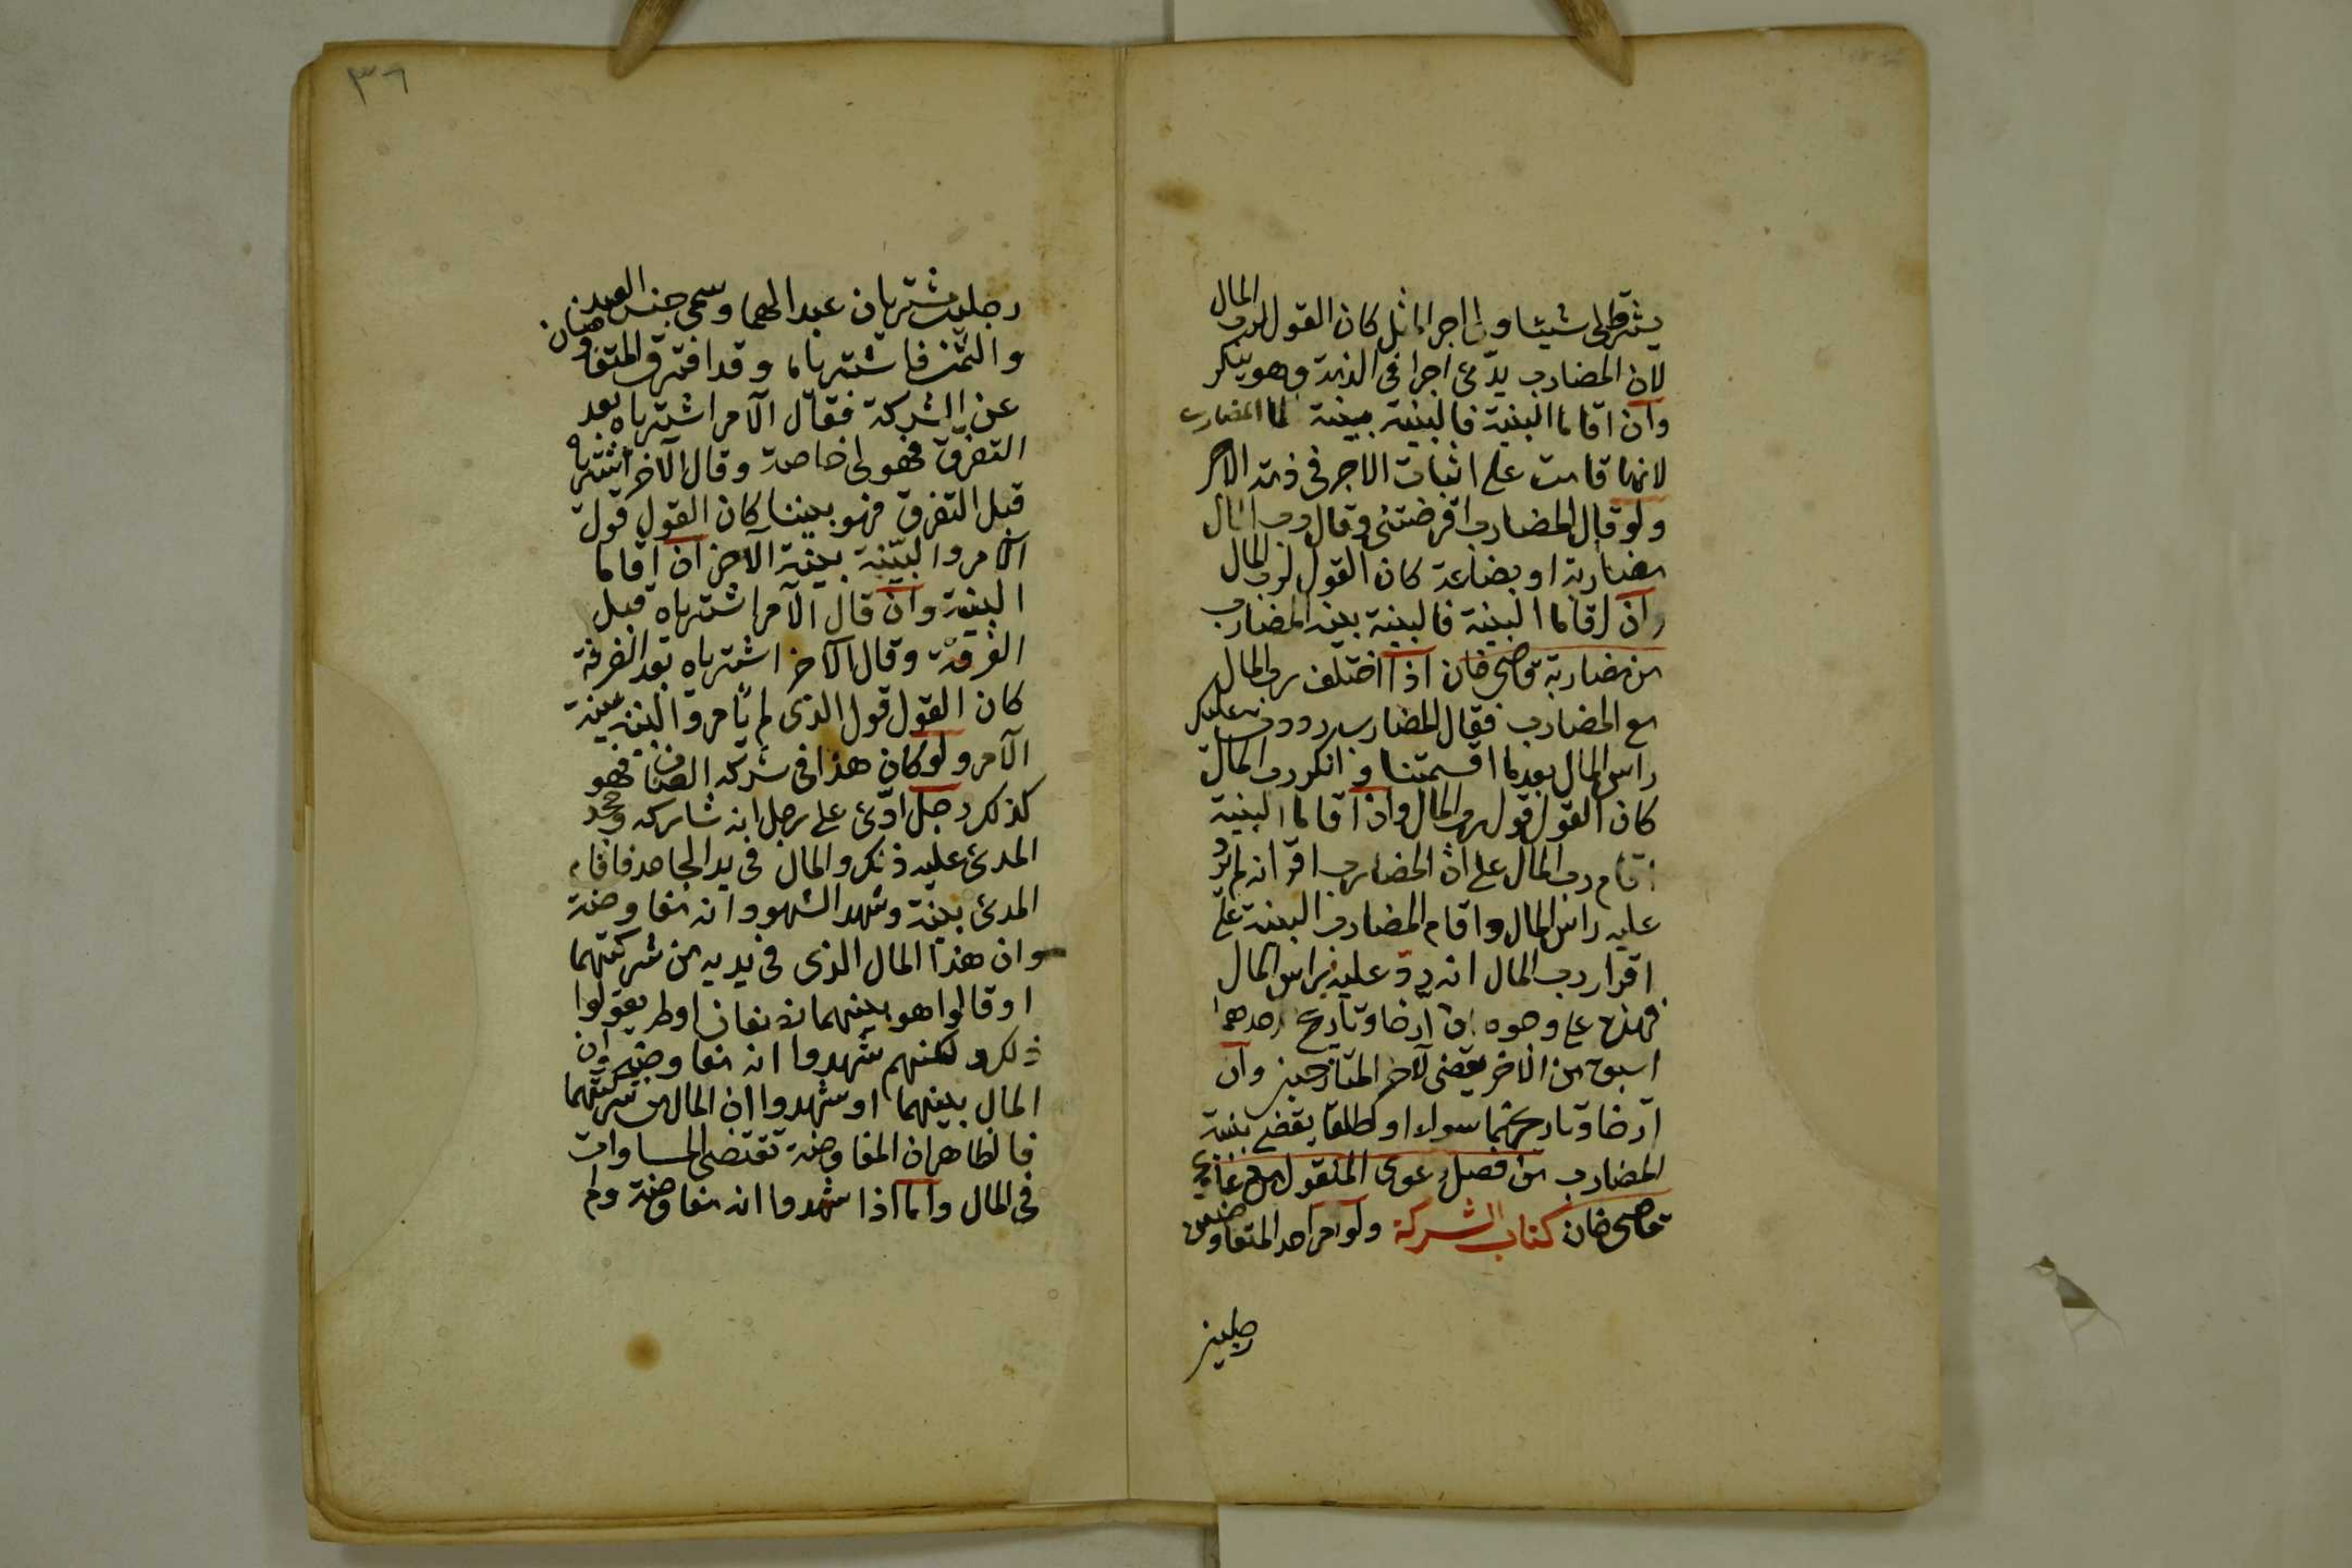 يشترط لى شيئا ولى اجر المثل كان القول لرب المال
لان المضارب يدّعى اجرا فى الذمة وهو ينكر
وان اقاما البينة فالبينة بينة المضارب
لانها قامت على اثبات الاجر فى ذمة الاخر
ولو قال المضارب اقرضتنى وقال رب المال
مضاربة او بضاعة كان القول لرب المال
وان اقاما البينة فالبينة بينة المضارب
من مضاربة قاضى خان اذا اختلف رب المال
مع المضارب فقال المضارب رددت عليك
راس المال بعد ما اقتسمنا وانكر رب المال
كان القول قول رب المال وان اقاما البينة
اقام رب المال على ان المضارب اقرّ انه لم يردّ
عليه راس المال واقام المضارب البينة على
اقرار رب المال انه ردّ عليه راس المال
فهذه على وجوه ان ارخا وتاريخ احدهما
اسبق من الاخر يقضى لآخر التاريخين وان
ارخا وتاريخهما سواء او اطلقا يقضى ببينة
المضارب من فصل دعوى المنقول من
قاضى خان كتاب الشركة ولو امر احد المتفاوضين
رجلين
٣٦
رجلين يشتريان عبدا لهما وسمى جنس العبد
والثمن فاشترياه وقد افترق المتفاوضان
عن الشركة فقال الآمر اشترياه بعد
التفرق فهو لى خاصة وقال الآخر اشترياه
قبل التفرق فهو بيننا كان القول قول
الآمر والبيّنة بينة الآخر ان اقاما
البينة وان قال الآمر اشترياه قبل
الفرقة وقال الآخر اشترياه بعد الفرقة
كان القول قول الذى لم يأمر والبينة بينة
الآمر ولو كان هذا فى شركة العنان فهو
كذلك رجل ادّعى على رجل انه شاركه وجحد
المدعى عليه ذلك والمال فى يد الجاحد فاقام
المدعى بينة وشهد الشهود انه مفاوضة
وان هذا المال الذى فى يديه من شركتهما
او قالوا هو بينهما نصفان او لم يقولوا
ذلك ولكنهم شهدوا انه مفاوضه وان
المال بينهما او شهدوا ان المال من شركتهما
فالظاهر ان المفاوضة تقتضى المساوات
فى المال واما اذا شهدوا انه مفاوضة ولم